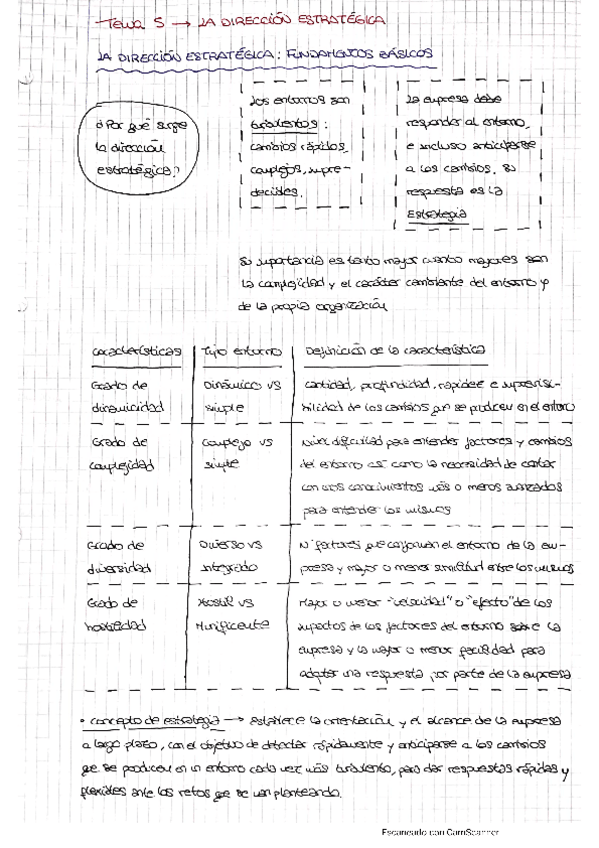 Tema 5 → LA DIRECCIÓN ESTRATÉGICA
LA DIRECCIÓN ESTRATÉGICA: FUNDAMENTOS BÁSICOS
¿Por qué surge
la dirección
estratégica?
Los entornos son
turbulentos:
cambios rápidos,
complejos, impre-
decibles.
La empresa debe
responder al entorno,
e incluso anticiparse
a los cambios. Su
respuesta es la
Estrategia
Su importancia es tanto mayor cuanto mayores son
la complejidad y el carácter cambiante del entorno y
de la propia organización
Características Tipo entorno Definición de la característica
Grado de Dinámico vs cantidad, profundidad, rapidez e imprevisi-
dinamicidad simple bilidad de los cambios que se producen en el entorno
Grado de Complejo vs Nivel dificultad para entender factores y cambios
complejidad simple del entorno así como la necesidad de contar
con unos conocimientos más o menos avanzados
para entender los mismos
Grado de Diverso vs Nº factores que conforman el entorno de la em-
diversidad Integrado presa y mayor o menor similitud entre los mismos
Grado de Hostil vs Mayor o menor "velocidad" o "efecto" de los
hostilidad Munificente impactos de los factores del entorno sobre la
empresa y la mayor o menor facilidad para
adoptar una respuesta por parte de la empresa
• concepto de estrategia → establece la orientación y el alcance de la empresa
a largo plazo, con el objetivo de detectar rápidamente y anticiparse a los cambios
que se producen en un entorno cada vez más turbulento, para dar respuestas rápidas y
flexibles ante los retos que se van planteando.
Escaneado con CamScanner